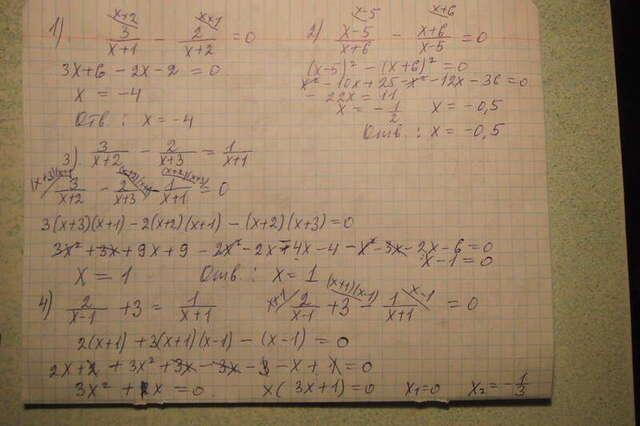 1) 3/(x+1) (x+2) - 2/(x+2) (x+1) = 0
3x+6 - 2x - 2 = 0
x = -4
Отв: x = -4
2) (x-5)/(x+6) (x-5) - (x+6)/(x-5) (x+6) = 0
(x-5)² - (x+6)² = 0
x² - 10x + 25 - x² - 12x - 36 = 0
- 22x = 11
x = - 1/2 x = -0,5
Отв: x = -0,5
3) 3/(x+2) - 2/(x+3) = 1/(x+1)
(x+3)(x+1) 3/(x+2) - 2/(x+3) - (x+2)(x+3) 1/(x+1) = 0
3(x+3)(x+1) - 2(x+2)(x+1) - (x+2)(x+3) = 0
3x² + 3x + 9x + 9 - 2x² - 2x - 4x - 4 - x² - 3x - 2x - 6 = 0
x - 1 = 0
x = 1 Отв: x = 1
4) 2/(x-1) + 3 = 1/(x+1) x+1 2/(x-1) + 3 (x+1)(x-1) - 1/(x+1) x-1 = 0
2(x+1) + 3(x+1)(x-1) - (x-1) = 0
2x + 2 + 3x² + 3x - 3x - 3 - x + 1 = 0
3x² + x = 0 x(3x+1) = 0 x₁=0 x₂ = -1/3